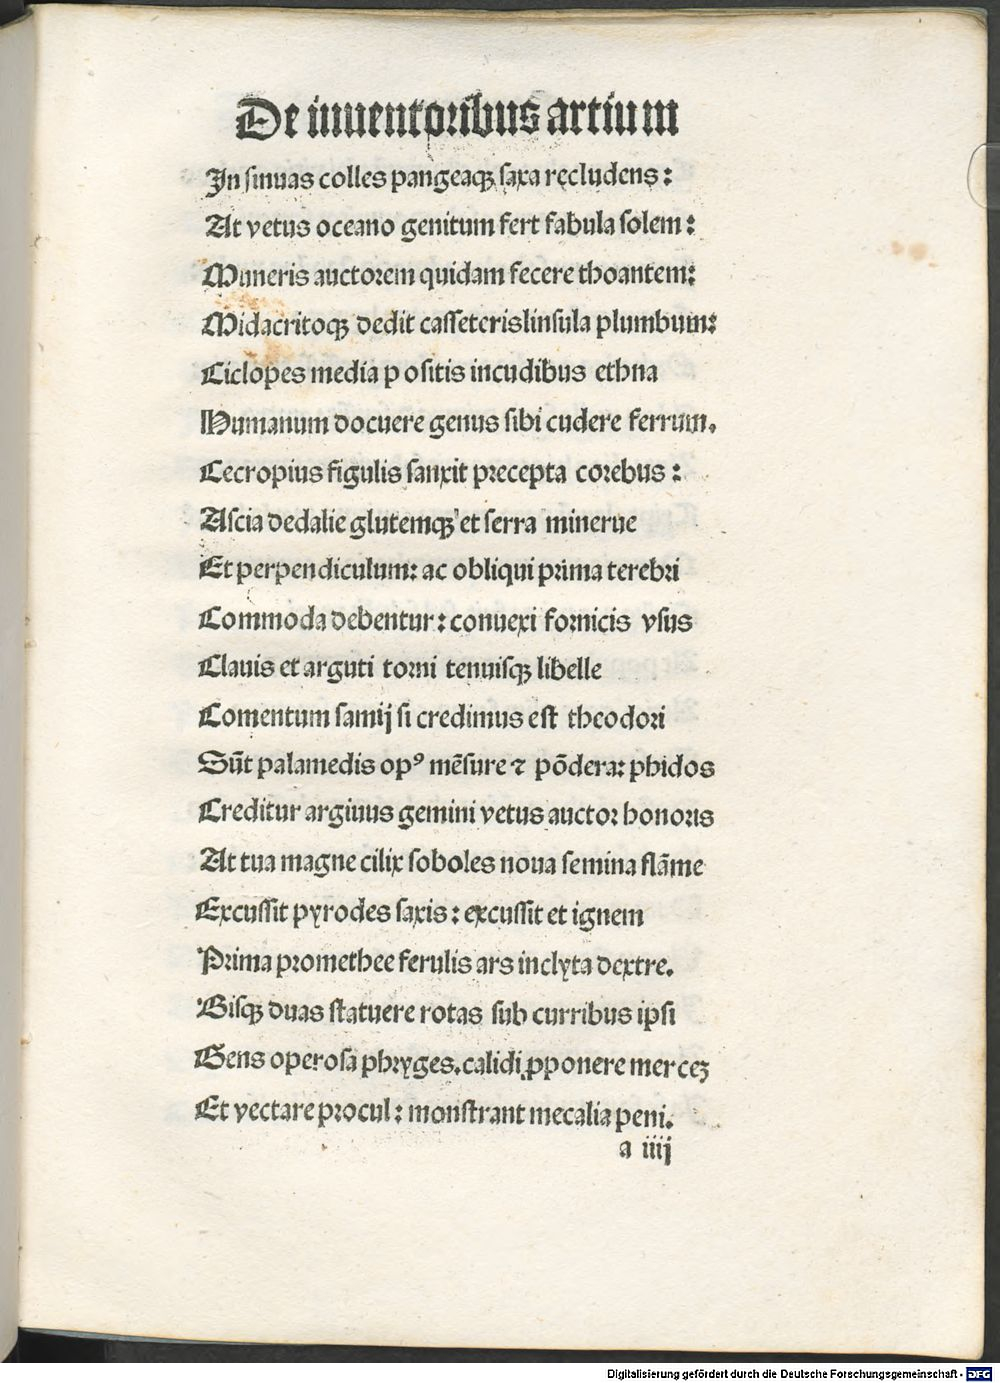 De inuentoribus artium
In sinuas colles pangeaqꝫ saxa recludens:
At vetus oceano genitum fert fabula solem:
Muneris auctorem quidam fecere thoantem:
Midacritoqꝫ dedit casseterislinsula plumbum:
Ciclopes media positis incudibus ethna
Humanum docuere genus sibi cudere ferrum.
Cecropius figulis sanxit precepta corebus:
Ascia dedalie glutemqꝫ et serra minerue
Et perpendiculum: ac obliqui prima terebri
Commoda debentur: conuexi fornicis vsus
Clauis et arguti torni tenuisqꝫ libelle
Comentum samij si credimus est theodori
Sūt palamedis opꝰ mēsure ⁊ pōdera: phidos
Creditur argiuus gemini vetus auctor honoris
At tua magne cilix soboles noua semina flāme
Excussit pyrodes saxis: excussit et ignem
Prima promethee ferulis ars inclyta dextre.
Bisqꝫ duas statuere rotas sub curribus ipsi
Gens operosa phryges. calidi ꝓponere merceꝫ
Et vectare procul: monstrant mecalia peni.
a iiij
Digitalisierung gefördert durch die Deutsche Forschungsgemeinschaft - DFG